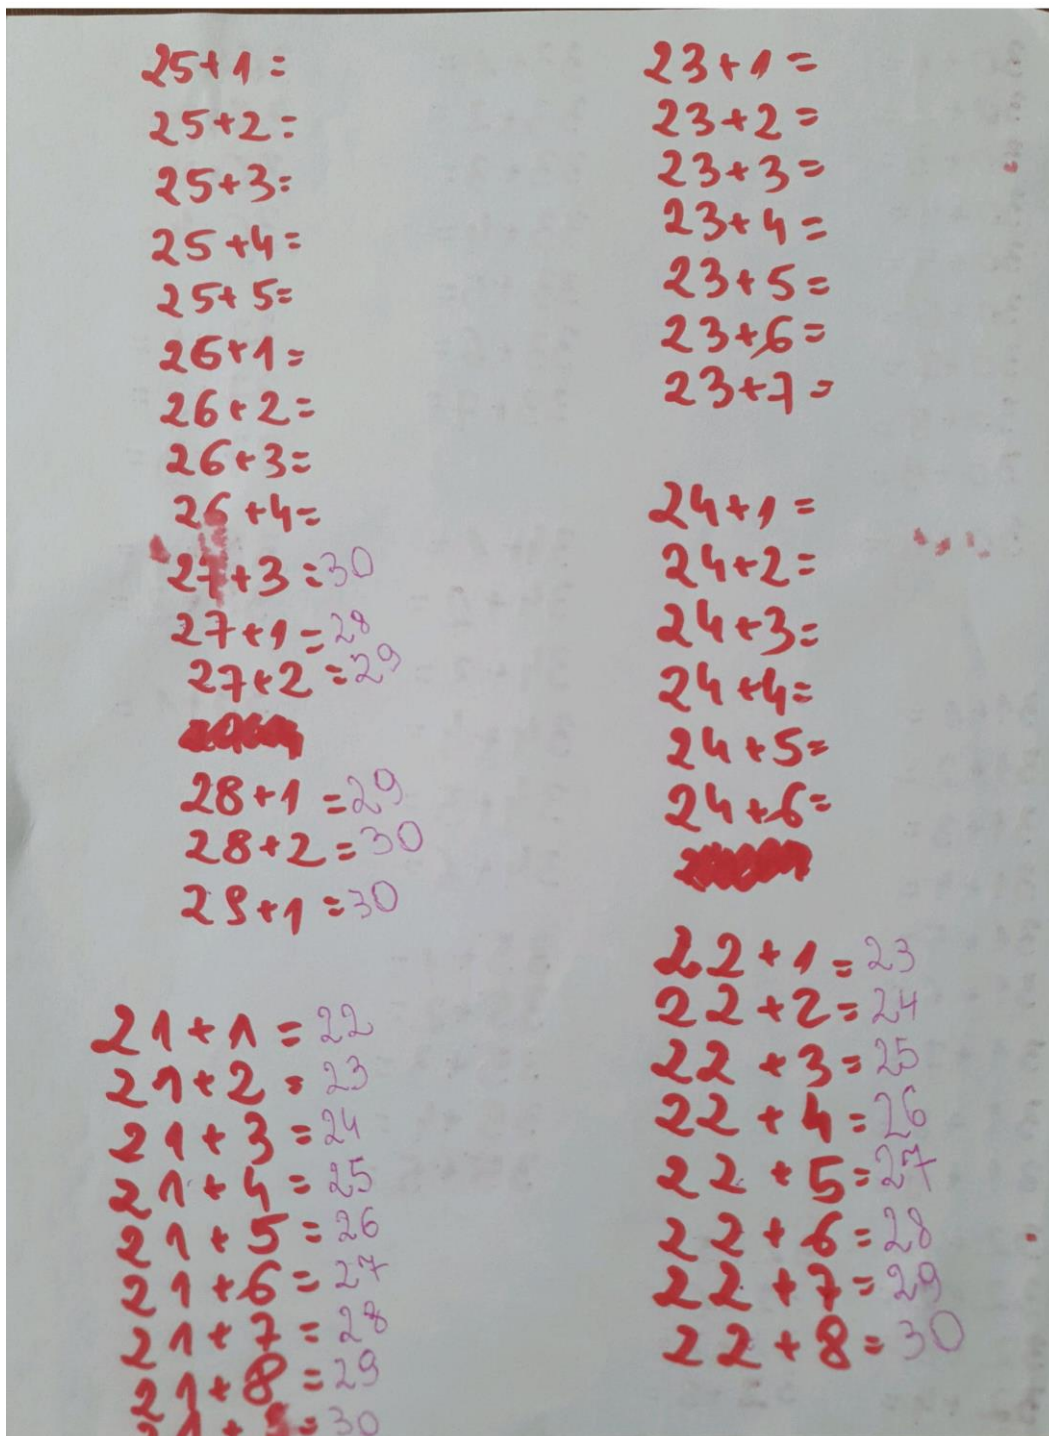 25+1=
25+2=
25+3=
25+4=
25+5=
26+1=
26+2=
26+3=
26+4=
27+3=30
27+1=28
27+2=29
28+1=29
28+2=30
29+1=30
21+1=22
21+2=23
21+3=24
21+4=25
21+5=26
21+6=27
21+7=28
21+8=29
21+9=30
23+1=
23+2=
23+3=
23+4=
23+5=
23+6=
23+7=
24+1=
24+2=
24+3=
24+4=
24+5=
24+6=
22+1=23
22+2=24
22+3=25
22+4=26
22+5=27
22+6=28
22+7=29
22+8=30